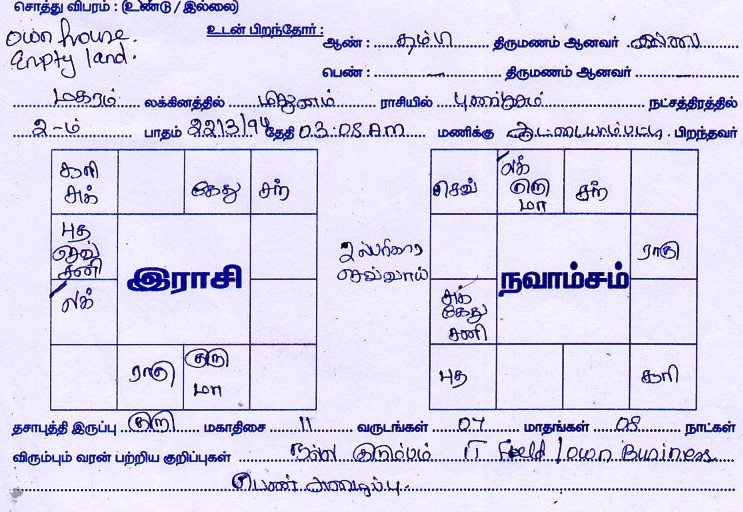 சொத்து விபரம் : (உண்டு / இல்லை)
own house.
Empty land.
உடன் பிறந்தோர் :
ஆண் : தம்பி திருமணம் ஆனவர் இல்லை
பெண் : — திருமணம் ஆனவர் —
மகரம் லக்கினத்தில் மிதுனம் ராசியில் புனர்பூசம் நட்சத்திரத்தில்
2-ம் பாதம் 22/3/94 தேதி 03:08 AM மணிக்கு ஆட்டையாம்பட்டி பிறந்தவர்
சூரி சுக் கேது சந்
புத செவ் சனி
லக்
ராகு குரு மா
இராசி
பரிகார செவ்வாய்
செவ் லக் குரு மா சந்
ராகு
சுக் கேது சனி
புத சூரி
நவாம்சம்
தசாபுத்தி இருப்பு குரு மகாதிசை 11 வருடங்கள் 07 மாதங்கள் 08 நாட்கள்
விரும்பும் வரன் பற்றிய குறிப்புகள் நல்ல குடும்பம் IT Field / own Business
பெண் அழைப்பு.